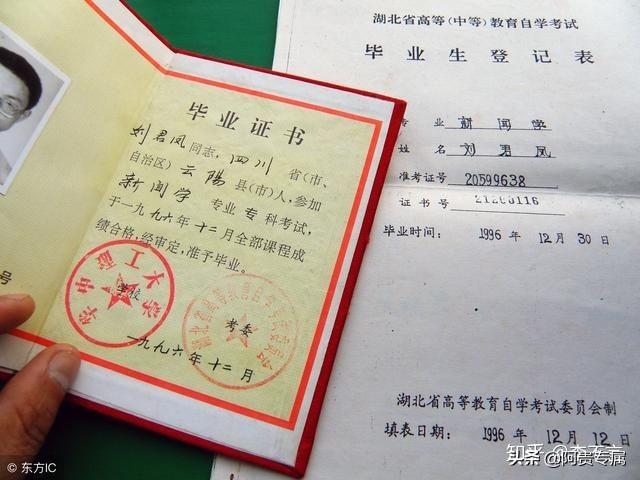 毕业证书
刘君凤同志,四川省(市、
自治区)云陽县(市)人,参加
新闻学专业专科考试,
于一九九六年十二月全部课程成
绩合格,经审定,准予毕业。
学校
考委
一九九六年十二月
号
湖北省高等(中等)教育自学考试
毕业生登记表
专业 新闻学
姓名 刘君凤
准考证号 20599638
证书号 21200116
毕业时间: 1996年12月30日
湖北省高等教育自学考试委员会制
填表日期: 1996年12月12日
© 东方IC
知乎
头条 @阿贵专属